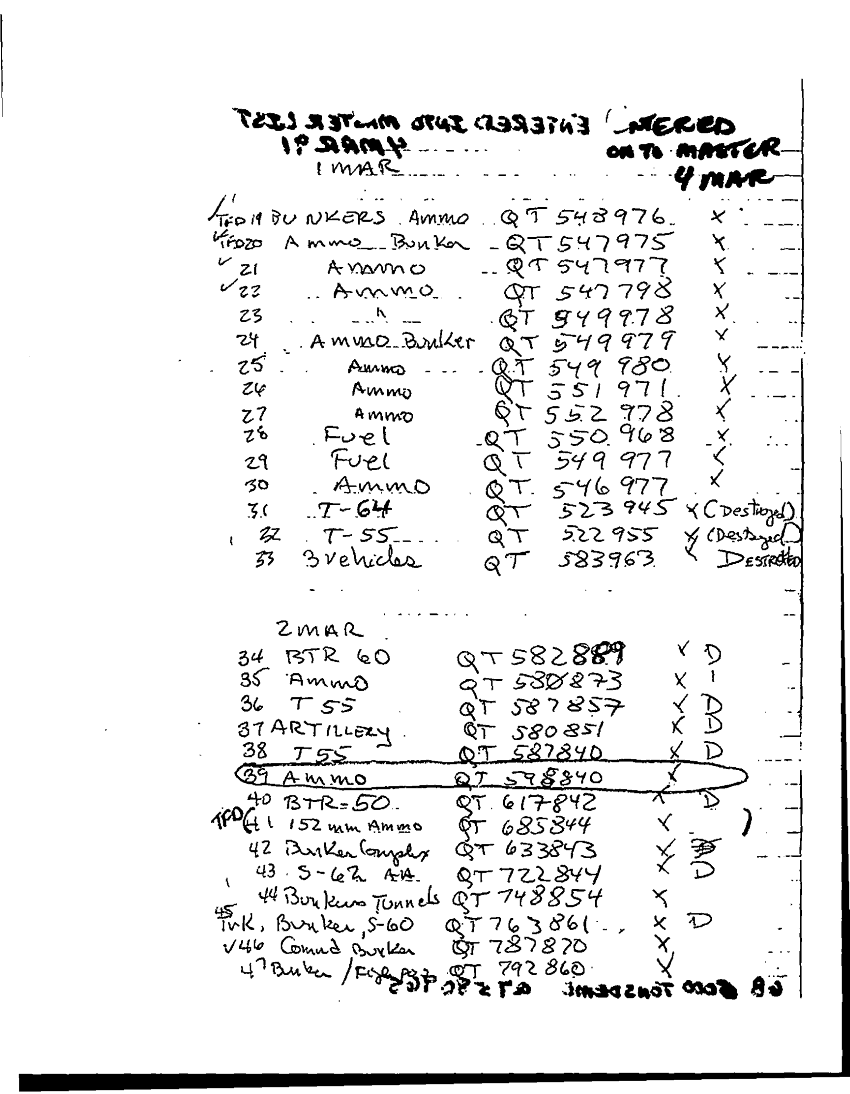 ENTERED INTO MASTER LIST
4 MAR 91
ENTERED
ON TO MASTER
4 MAR
1 MAR
TFD 19 BUNKERS Ammo QT 548976 X
TFD20 Ammo Bunker QT 547975 X
✓ 21 Ammo QT 547977 X
✓ 22 Ammo QT 547798 X
23 " QT 549978 X
24 Ammo Bunker QT 549979 X
25 Ammo QT 549 980 X
26 Ammo QT 551 971 X
27 Ammo QT 552 978 X
28 Fuel QT 550 968 X
29 Fuel QT 549 977 X
30 Ammo QT 546 977 X
31 T-64 QT 523 945 X (Destroyed)
32 T-55 QT 522 955 X (Destroyed)
33 3 vehicles QT 583963 X DESTROYED
2 MAR
34 BTR 60 QT 582889 X D
35 Ammo QT 580873 X 1
36 T 55 QT 587857 X D
37 ARTILLERY QT 580851 X D
38 T55 QT 587840 X D
39 Ammo QT 598840 X
40 BTR-50 QT 617842 X D
TFD (41 152 mm Ammo QT 685844 X )
42 Bunker Complex QT 633843 X
43 S-62 AA QT 722844 X D
44 Bunkers Tunnels QT 748854 X
45 Trk, Bunker, S-60 QT 763861 X D
✓46 Comnd Bunker QT 787870 X
47 Bunker / QT 792860 X